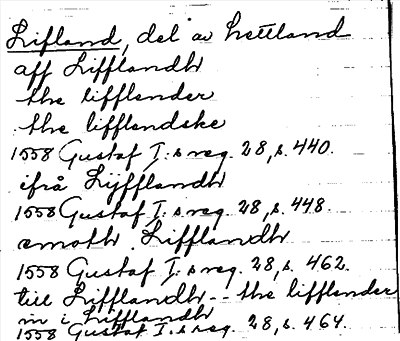 Lifland, del av Lettland
aff Lifflandh
the lifflender
the lifflendske
1558 Gustaf I:s reg. 28, s. 440.
ifrå Lijfflandh
1558 Gustaf I:s reg. 28, s. 448.
emoth Lifflandh
1558 Gustaf I:s reg. 28, s. 462.
till Lifflandh -- the lifflender
in i Lifflandh
1558 Gustaf I:s reg. 28, s. 464.